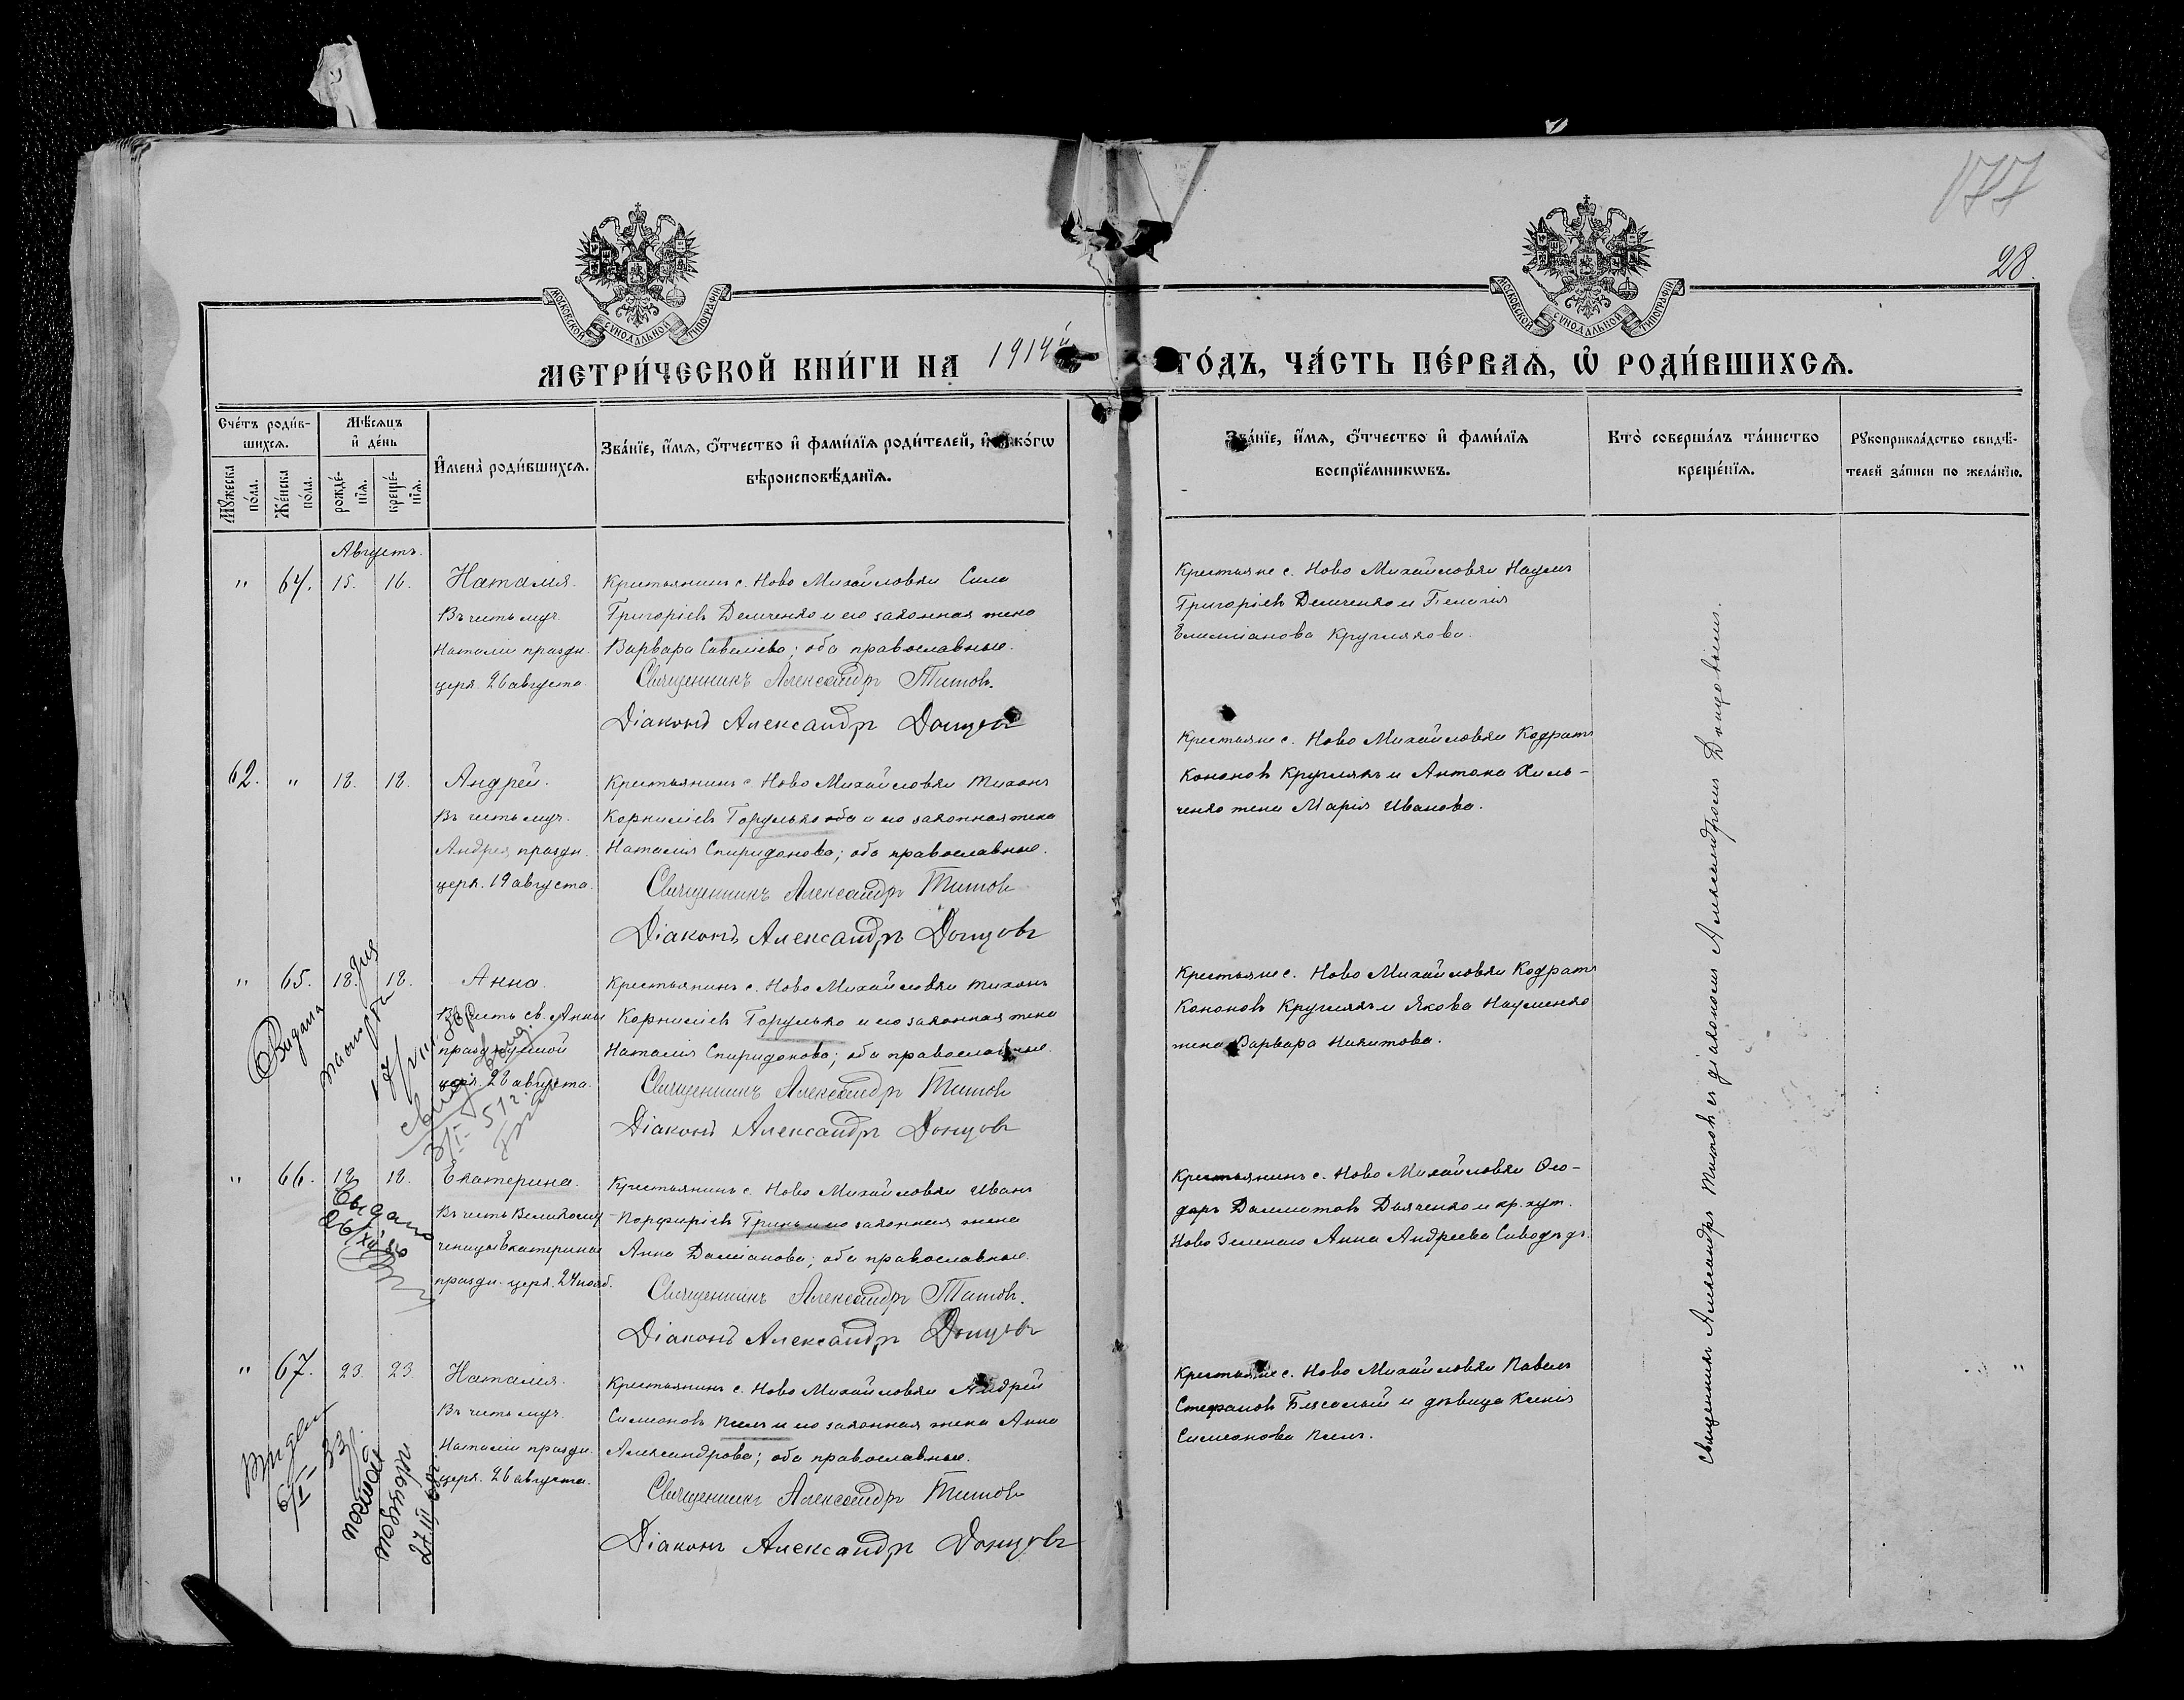 177
28.
МОСКОВСКОЙ СѴНОДАЛЬНОЙ ТИПОГРАФІИ
МОСКОВСКОЙ СѴНОДАЛЬНОЙ ТИПОГРАФІИ
МЕТРИ́ЧЕСКОЙ КНИ́ГИ НА 1914й ГО́ДЪ, ЧА́СТЬ ПЕ́РВАѦ, Ѡ РОДИ́ВШИХСѦ.
Сче́тъ роди́в-
шихсѧ.
Мꙋжеска
по́ла.
Же́нска
по́ла.
Мѣ́сѧцъ
и҆ де́нь
рожде́-
нїѧ.
креще́-
нїѧ.
И҆мена̀ роди́вшихсѧ.
Зва́нїе, и҆́мѧ, ѻ҆́тчество и҆ фами́лїѧ роди́телей, и҆ како́гѡ
вѣроисповѣ́данїѧ.
Зва́нїе, и҆́мѧ, ѻ҆́тчество и҆ фами́лїѧ
воспрїе́мникѡвъ.
Кто̀ соверша́лъ та́инство
креще́нїѧ.
Рꙋкоприкла́дство свидѣ́-
телей за́писи по жела́нїю.
Августъ.
" 64. 15. 16. Наталія.
Въ честь муч.
Наталіи праздн.
церк. 26 августа.
Крестьянинъ с. Ново Михайловки Сила
Григоріевъ Демченко и его законная жена
Варвара Савеліева; оба православные.
Священникъ Александръ Титовъ.
Діаконъ Александръ Донцовъ
Крестьяне с. Ново Михайловки Наумъ
Григоріевъ Демченко и Пелагія
Емиліанова Круглякова.
62. " 18. 18. Андрей.
Въ честь муч.
Андрея праздн.
церк. 19 августа.
Крестьянинъ с. Ново Михайловки Тихонъ
Корниліевъ Горулько оба и его законная жена
Наталія Спиридонова; оба православные.
Священникъ Александръ Титовъ
Діаконъ Александръ Донцовъ
Крестьяне с. Ново Михайловки Кодратъ
Кононовъ Круглякъ и Антона Хиль-
ченко жена Марія Иванова.
" 65. 18. 18. Анна.
Въ честь св. Анны
празднуемой
церк. 28 августа.
Выдана
Крестьянинъ с. Ново Михайловки Тихонъ
Корниліевъ Горулько и его законная жена
Наталія Спиридонова; оба православные.
Священникъ Александръ Титовъ
Діаконъ Александръ Донцовъ
Крестьяне с. Ново Михайловки Кодратъ
Кононовъ Круглякъ и Якова Науменко
жена Варвара Никитова.
" 66. 18. 18. Екатерина.
Въ честь Великому-
ченицы Екатерины
праздн. церк. 24 нояб.
Крестьянинъ с. Ново Михайловки Иванъ
Порфиріевъ Гринь и его законная жена
Анна Даміанова; оба православные.
Священникъ Александръ Титовъ.
Діаконъ Александръ Донцовъ
Крестьянинъ с. Ново Михайловки Ѳео-
доръ Далматовъ Дяченко и кр. хут.
Анна Андреева
" 67. 23. 23. Наталія.
Въ честь муч.
Наталіи праздн.
церк. 26 августа.
Крестьянинъ с. Ново Михайловки Андрей
Симеоновъ и его законная жена Анна
Александрова; оба православные.
Священникъ Александръ Титовъ
Діаконъ Александръ Донцовъ
Крестьяне с. Ново Михайловки Павелъ
Стефановъ и дѣвица Ксенія
Симеонова
Священникъ Александръ Титовъ съ діакономъ Александромъ Донцовымъ.